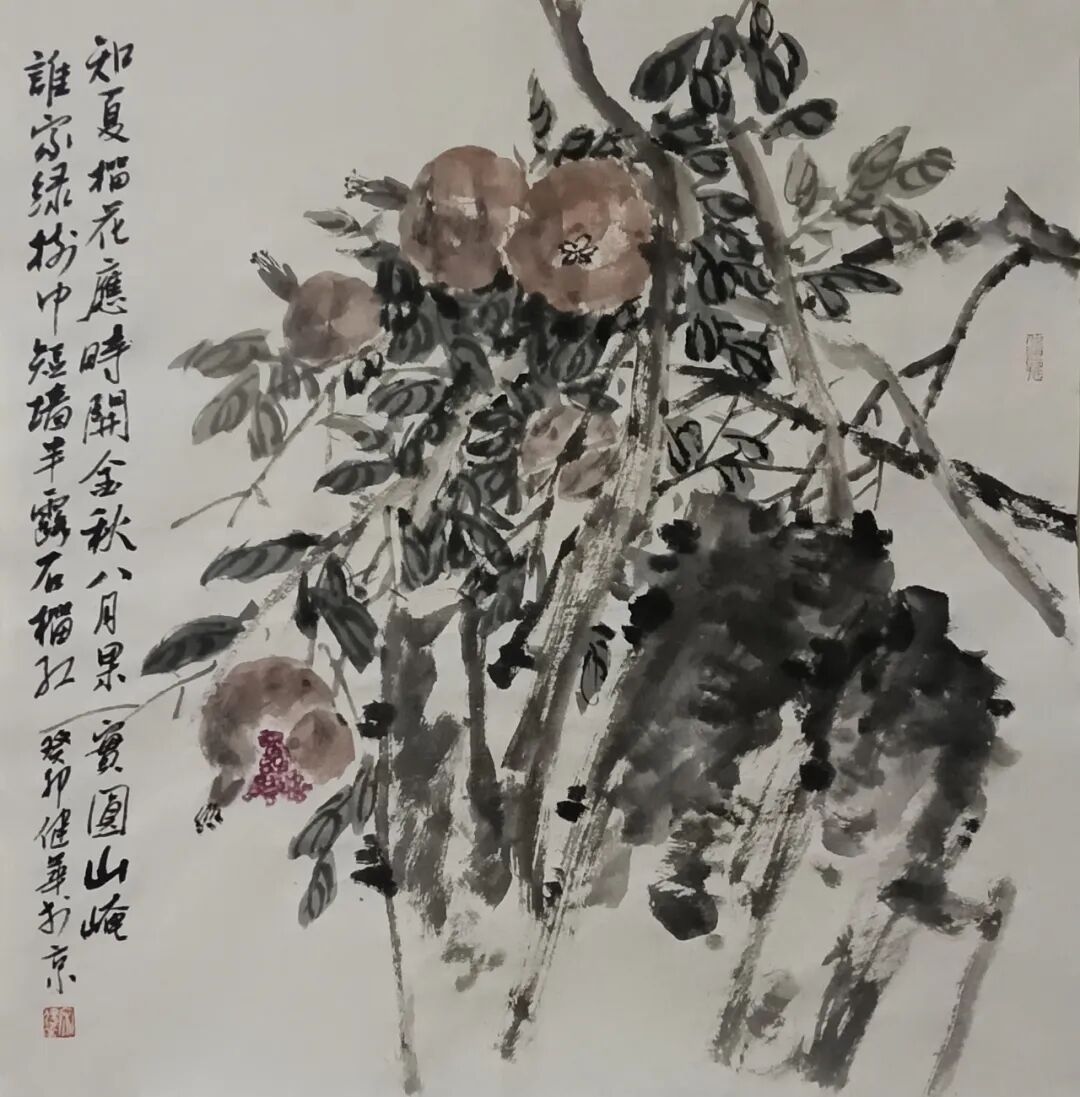 知夏榴花應時開金秋八月果實圓山崦
誰家綠樹中短墙半露石榴紅
癸卯健華於京